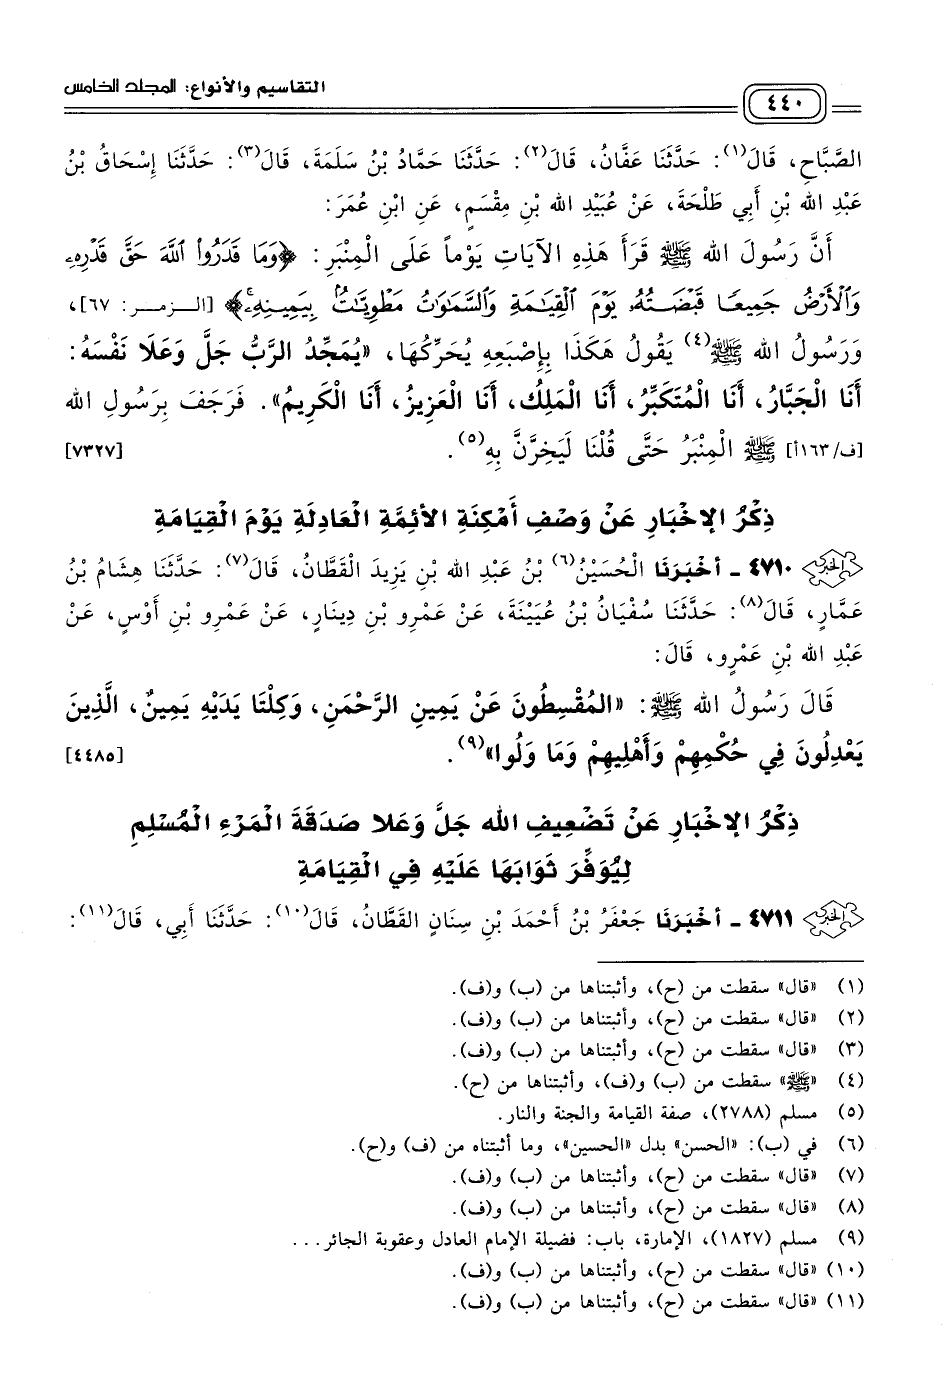 التقاسيم والأنواع: المجلد الخامس
٤٤٠
الصَّبَّاحِ، قَالَ(١): حَدَّثَنَا عَفَّانُ، قَالَ(٢): حَدَّثَنَا حَمَّادُ بْنُ سَلَمَةَ، قَالَ(٣): حَدَّثَنَا إِسْحَاقُ بْنُ
عَبْدِ الله بْنِ أَبِي طَلْحَةَ، عَنْ عُبَيْدِ الله بْنِ مِقْسَمٍ، عَنِ ابْنِ عُمَرَ:
أَنَّ رَسُولَ الله ﷺ قَرَأَ هَذِهِ الآيَاتِ يَوْماً عَلَى الْمِنْبَرِ: ﴿وَمَا قَدَرُوا۟ ٱللَّهَ حَقَّ قَدْرِهِۦ
وَٱلْأَرْضُ جَمِيعًا قَبْضَتُهُۥ يَوْمَ ٱلْقِيَٰمَةِ وَٱلسَّمَٰوَٰتُ مَطْوِيَّٰتٌۢ بِيَمِينِهِۦۚ﴾ [الـزمـر: ٦٧]،
وَرَسُولُ الله ﷺ(٤) يَقُولُ هَكَذَا بِإِصْبَعِهِ يُحَرِّكُهَا، «يُمَجِّدُ الرَّبُّ جَلَّ وَعَلَا نَفْسَهُ:
أَنَا الْجَبَّارُ، أَنَا الْمُتَكَبِّرُ، أَنَا الْمَلِكُ، أَنَا الْعَزِيزُ، أَنَا الْكَرِيمُ». فَرَجَفَ بِرَسُولِ الله
[ف/١٦٣أ] ﷺ الْمِنْبَرُ حَتَّى قُلْنَا لَيَخِرَّنَّ بِهِ(٥). [٧٣٢٧]
ذِكْرُ الإخْبَارِ عَنْ وَصْفِ أَمْكِنَةِ الأئِمَّةِ الْعَادِلَةِ يَوْمَ الْقِيَامَةِ
الخبر ٤٧١٠ ـ أَخْبَرَنَا الْحُسَيْنُ(٦) بْنُ عَبْدِ الله بْنِ يَزِيدَ الْقَطَّانُ، قَالَ(٧): حَدَّثَنَا هِشَامُ بْنُ
عَمَّارٍ، قَالَ(٨): حَدَّثَنَا سُفْيَانُ بْنُ عُيَيْنَةَ، عَنْ عَمْرِو بْنِ دِينَارٍ، عَنْ عَمْرِو بْنِ أَوْسٍ، عَنْ
عَبْدِ الله بْنِ عَمْرٍو، قَالَ:
قَالَ رَسُولُ الله ﷺ: «الْمُقْسِطُونَ عَنْ يَمِينِ الرَّحْمَنِ، وَكِلْتَا يَدَيْهِ يَمِينٌ، الَّذِينَ
يَعْدِلُونَ فِي حُكْمِهِمْ وَأَهْلِيهِمْ وَمَا وَلُوا»(٩). [٤٤٨٥]
ذِكْرُ الإخْبَارِ عَنْ تَضْعِيفِ الله جَلَّ وَعَلا صَدَقَةَ الْمَرْءِ الْمُسْلِمِ
لِيُوَفَّرَ ثَوَابَهَا عَلَيْهِ فِي الْقِيَامَةِ
الخبر ٤٧١١ ـ أَخْبَرَنَا جَعْفَرُ بْنُ أَحْمَدَ بْنِ سِنَانٍ القَطَّانُ، قَالَ(١٠): حَدَّثَنَا أَبِي، قَالَ(١١):
(١) «قال» سقطت من (ح)، وأثبتناها من (ب) و(ف).
(٢) «قال» سقطت من (ح)، وأثبتناها من (ب) و(ف).
(٣) «قال» سقطت من (ح)، وأثبتناها من (ب) و(ف).
(٤) «ﷺ» سقطت من (ب) و(ف)، وأثبتناها من (ح).
(٥) مسلم (٢٧٨٨)، صفة القيامة والجنة والنار.
(٦) في (ب): «الحسن» بدل «الحسين»، وما أثبتناه من (ف) و(ح).
(٧) «قال» سقطت من (ح)، وأثبتناها من (ب) و(ف).
(٨) «قال» سقطت من (ح)، وأثبتناها من (ب) و(ف).
(٩) مسلم (١٨٢٧)، الإمارة، باب: فضيلة الإمام العادل وعقوبة الجائر...
(١٠) «قال» سقطت من (ح)، وأثبتناها من (ب) و(ف).
(١١) «قال» سقطت من (ح)، وأثبتناها من (ب) و(ف).